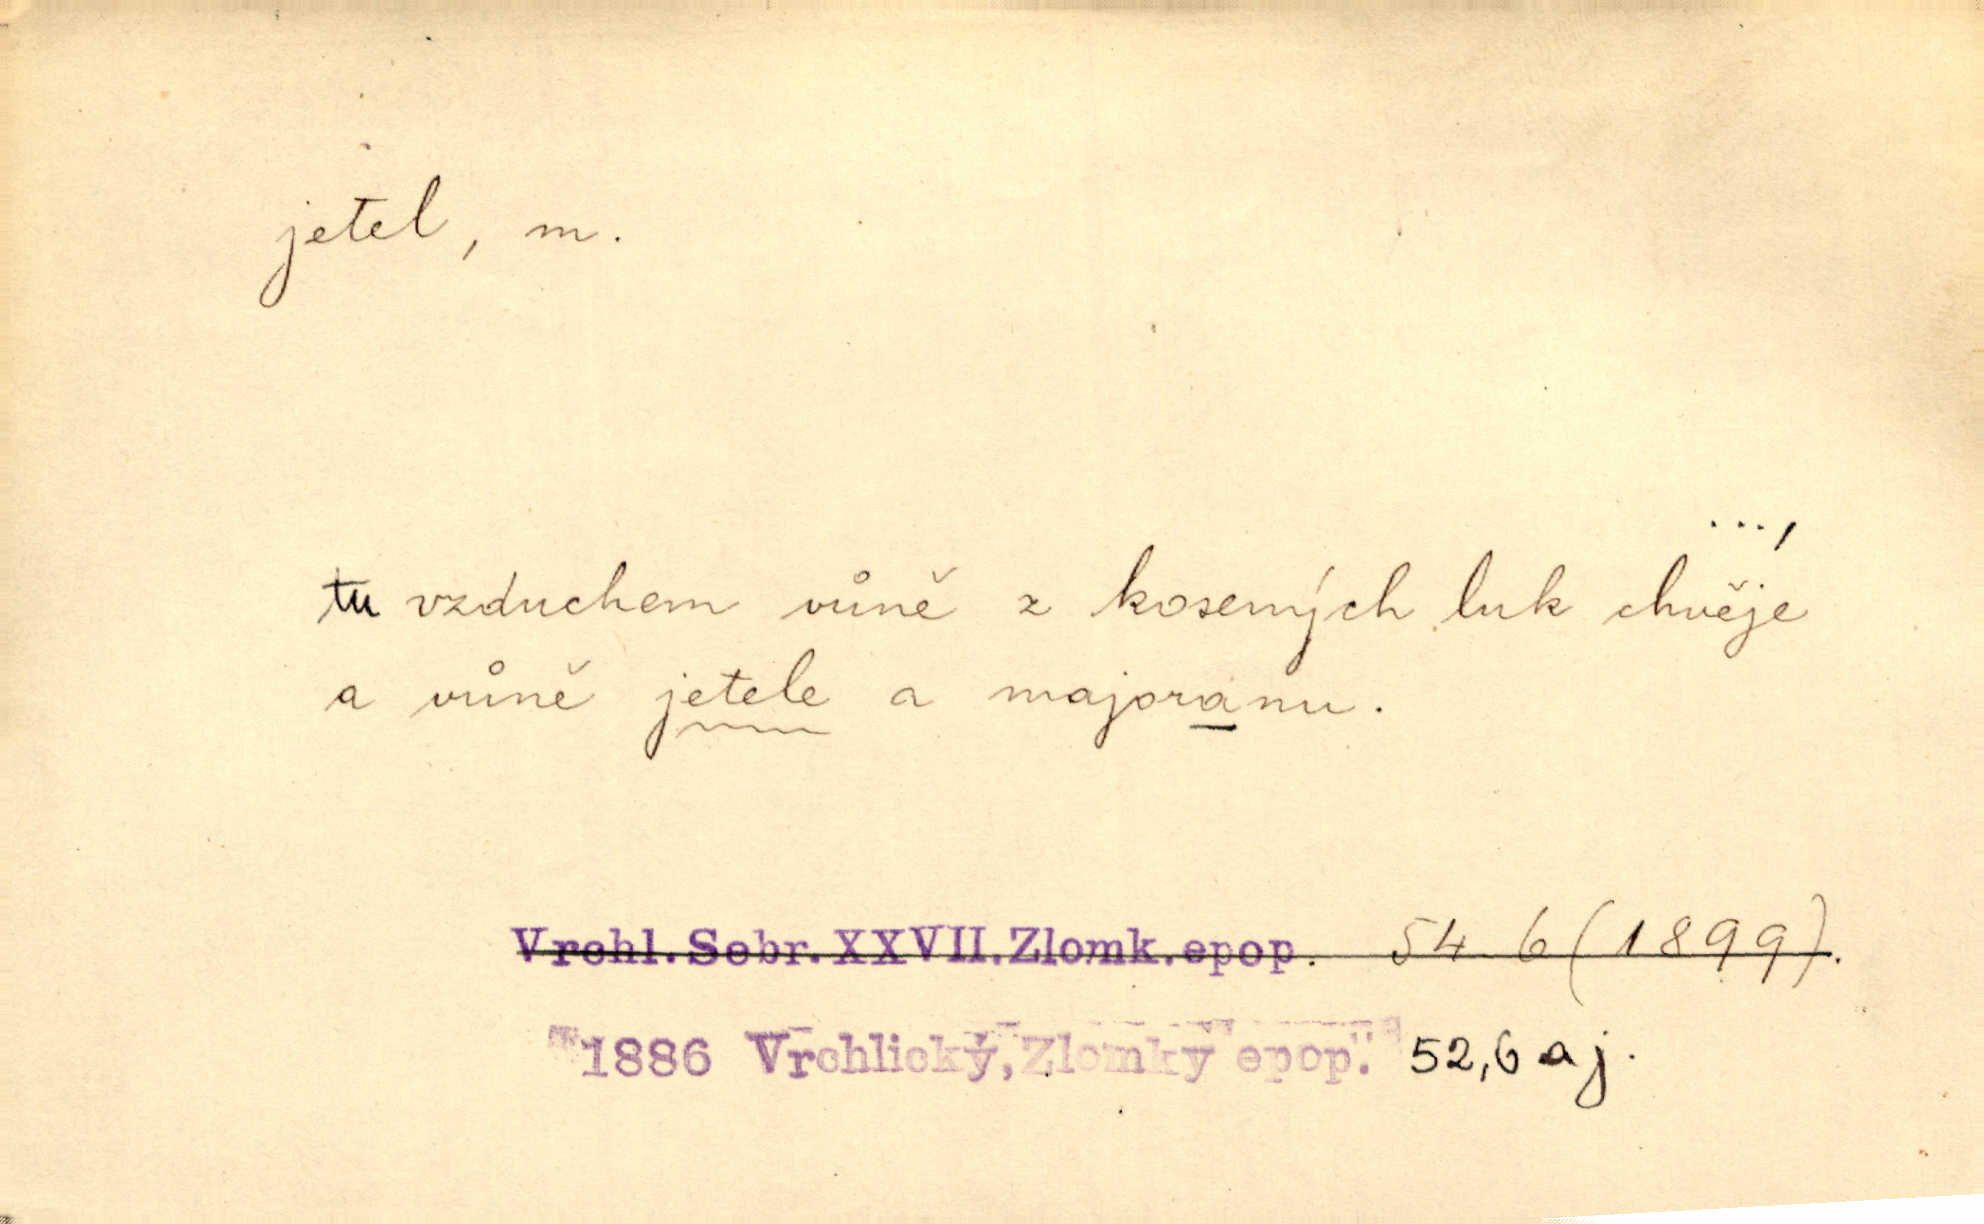 jetel, m.
...,
tu vzduchem vůně z kosených luk chvěje
a vůně jetele a majoranu.
Vrchl. Sebr. XXVII. Zlomk. epop. 54 6 (1899).
1886 Vrchlický, Zlomky epop. 52,6 aj.